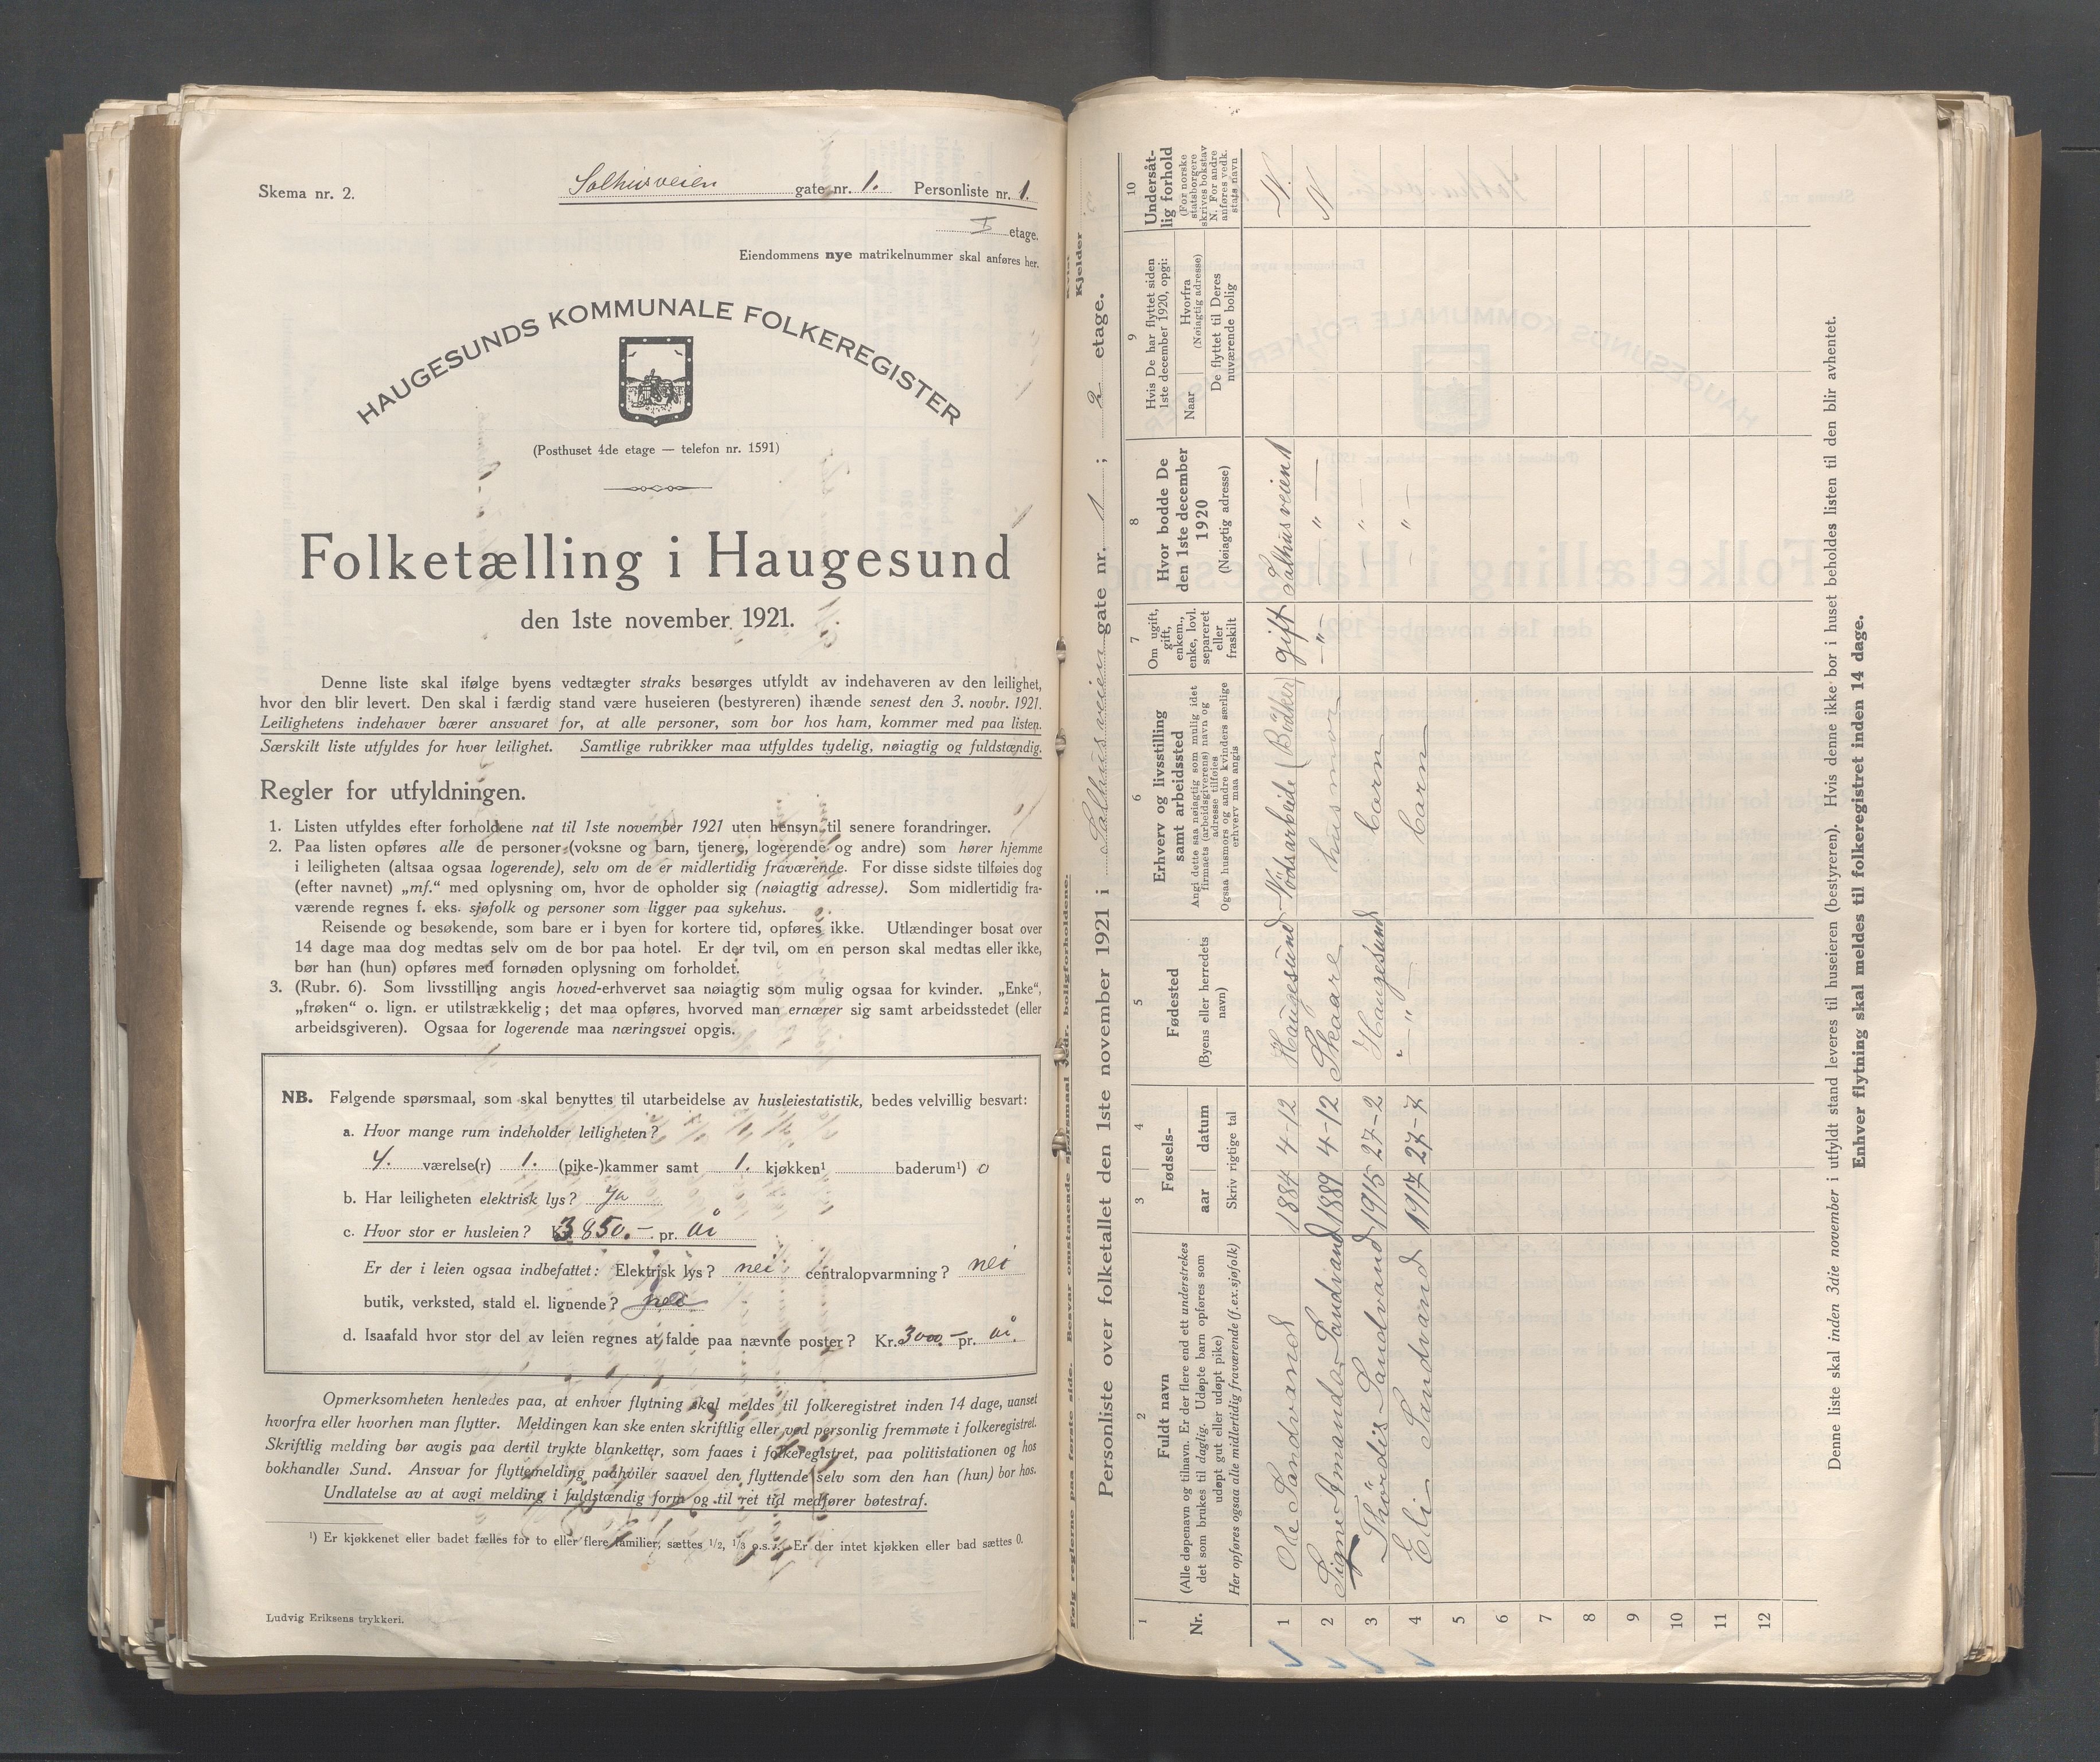 Skema nr. 2.
Salhusveien gate nr. 1. Personliste nr. 1.
I etage.
Eiendommens nye matrikelnummer skal anføres her.
HAUGESUNDS KOMMUNALE FOLKEREGISTER
(Posthuset 4de etage — telefon nr. 1591)
Folketælling i Haugesund
den 1ste november 1921.
Denne liste skal ifølge byens vedtægter straks besørges utfyldt av indehaveren av den leilighet,
hvor den blir levert. Den skal i færdig stand være huseieren (bestyreren) ihænde senest den 3. novbr. 1921.
Leilighetens indehaver bærer ansvaret for, at alle personer, som bor hos ham, kommer med paa listen.
Særskilt liste utfyldes for hver leilighet. Samtlige rubrikker maa utfyldes tydelig, nøiagtig og fuldstændig.
Regler for utfyldningen.
1. Listen utfyldes efter forholdene nat til 1ste november 1921 uten hensyn til senere forandringer.
2. Paa listen opføres alle de personer (voksne og barn, tjenere, logerende og andre) som hører hjemme
i leiligheten (altsaa ogsaa logerende), selv om de er midlertidig fraværende. For disse sidste tilføies dog
(efter navnet) „mf.“ med oplysning om, hvor de opholder sig (nøiagtig adresse). Som midlertidig fra-
værende regnes f. eks. sjøfolk og personer som ligger paa sykehus.
Reisende og besøkende, som bare er i byen for kortere tid, opføres ikke. Utlændinger bosat over
14 dage maa dog medtas selv om de bor paa hotel. Er der tvil, om en person skal medtas eller ikke,
bør han (hun) opføres med fornøden oplysning om forholdet.
3. (Rubr. 6). Som livsstilling angis hoved-erhvervet saa nøiagtig som mulig ogsaa for kvinder. „Enke“,
„frøken“ o. lign. er utilstrækkelig; det maa opføres, hvorved man ernærer sig samt arbeidsstedet (eller
arbeidsgiveren). Ogsaa for logerende maa næringsvei opgis.
NB. Følgende spørsmaal, som skal benyttes til utarbeidelse av husleiestatistik, bedes velvillig besvart:
a. Hvor mange rum indeholder leiligheten?
4. værelse(r) 1. (pike-)kammer samt 1. kjøkken¹ baderum¹) 0
b. Har leiligheten elektrisk lys? Ja
c. Hvor stor er husleien? Kr. 3850.— pr. år
Er der i leien ogsaa indbefattet: Elektrisk lys? nei centralopvarmning? nei
butik, verksted, stald el. lignende?
d. Isaafald hvor stor del av leien regnes at falde paa nævnte poster? Kr. 3000.— pr. år.
Opmerksomheten henledes paa, at enhver flytning skal meldes til folkeregistret inden 14 dage, uanset
hvorfra eller hvorhen man flytter. Meldingen kan ske enten skriftlig eller ved personlig fremmøte i folkeregistret.
Skriftlig melding bør avgis paa dertil trykte blanketter, som faaes i folkeregistret, paa politistationen og hos
bokhandler Sund. Ansvar for flyttemelding paahviler saavel den flyttende selv som den han (hun) bor hos.
Undlatelse av at avgi melding i fuldstændig form og til ret tid medfører bøtestraf.
¹) Er kjøkkenet eller badet fælles for to eller flere familier, sættes 1/2, 1/3 o.s.v. Er der intet kjøkken eller bad sættes 0.
Ludvig Eriksens trykkeri.
Følg reglerne paa første side. Besvar omstaaende spørsmaal vedr. boligforholdene.
Kvist
Kjelder
Personliste over folketallet den 1ste november 1921 i Salhusveien gate nr. 1 ; 2 etage.
1 2 3 4 5 6 7 8 9 10
Nr.
Fuldt navn
(Alle døpenavn og tilnavn. Er der flere end ett understrekes
det som brukes til daglig. Udøpte barn opføres som
udøpt gut eller udøpt pike)
Her opføres ogsaa alle midlertidig fraværende (f.ex. sjøfolk)
Fødsels-
aar datum
Skriv rigtige tal
Fødested
(Byens eller herredets
navn)
Erhverv og livsstilling
samt arbeidssted
Angi dette saa nøiagtig som mulig idet
firmaets (arbeidsgiverens) navn og
adresse tilføies
Ogsaa husmors og andre kvinders særlige
erhverv maa angis
Om ugift,
gift,
enkem.,
enke, lovl.
separeret
eller
fraskilt
Hvor bodde De
den 1ste december
1920
(Nøiagtig adresse)
Hvis De har flyttet siden
1ste december 1920, opgi:
Naar
Hvorfra
(Nøiagtig adresse)
De flyttet til Deres
nuværende bolig
Undersåt-
lig forhold
(For norske
statsborgere
skrives bokstav
N. For andre
anføres vedk.
stats navn
1 Ole Sandvand 1884 4-12 Haugesund Nödsarbeide (Bödker) gift Salhusveien 1 N.
2 Signe Amanda Sandvand 1889 4-12 Skaare husmor —"— —"— N
3 Thördis Sandvand 1915 27-2 Haugesund barn —"—
4 Eli Sandvand 1917 27-7 —"— barn —"—
5
6
7
8
9
10
11
12
Denne liste skal inden 3die november i utfyldt stand leveres til huseieren (bestyreren). Hvis denne ikke bor i huset beholdes listen til den blir avhentet.
Enhver flytning skal meldes til folkeregistret inden 14 dage.